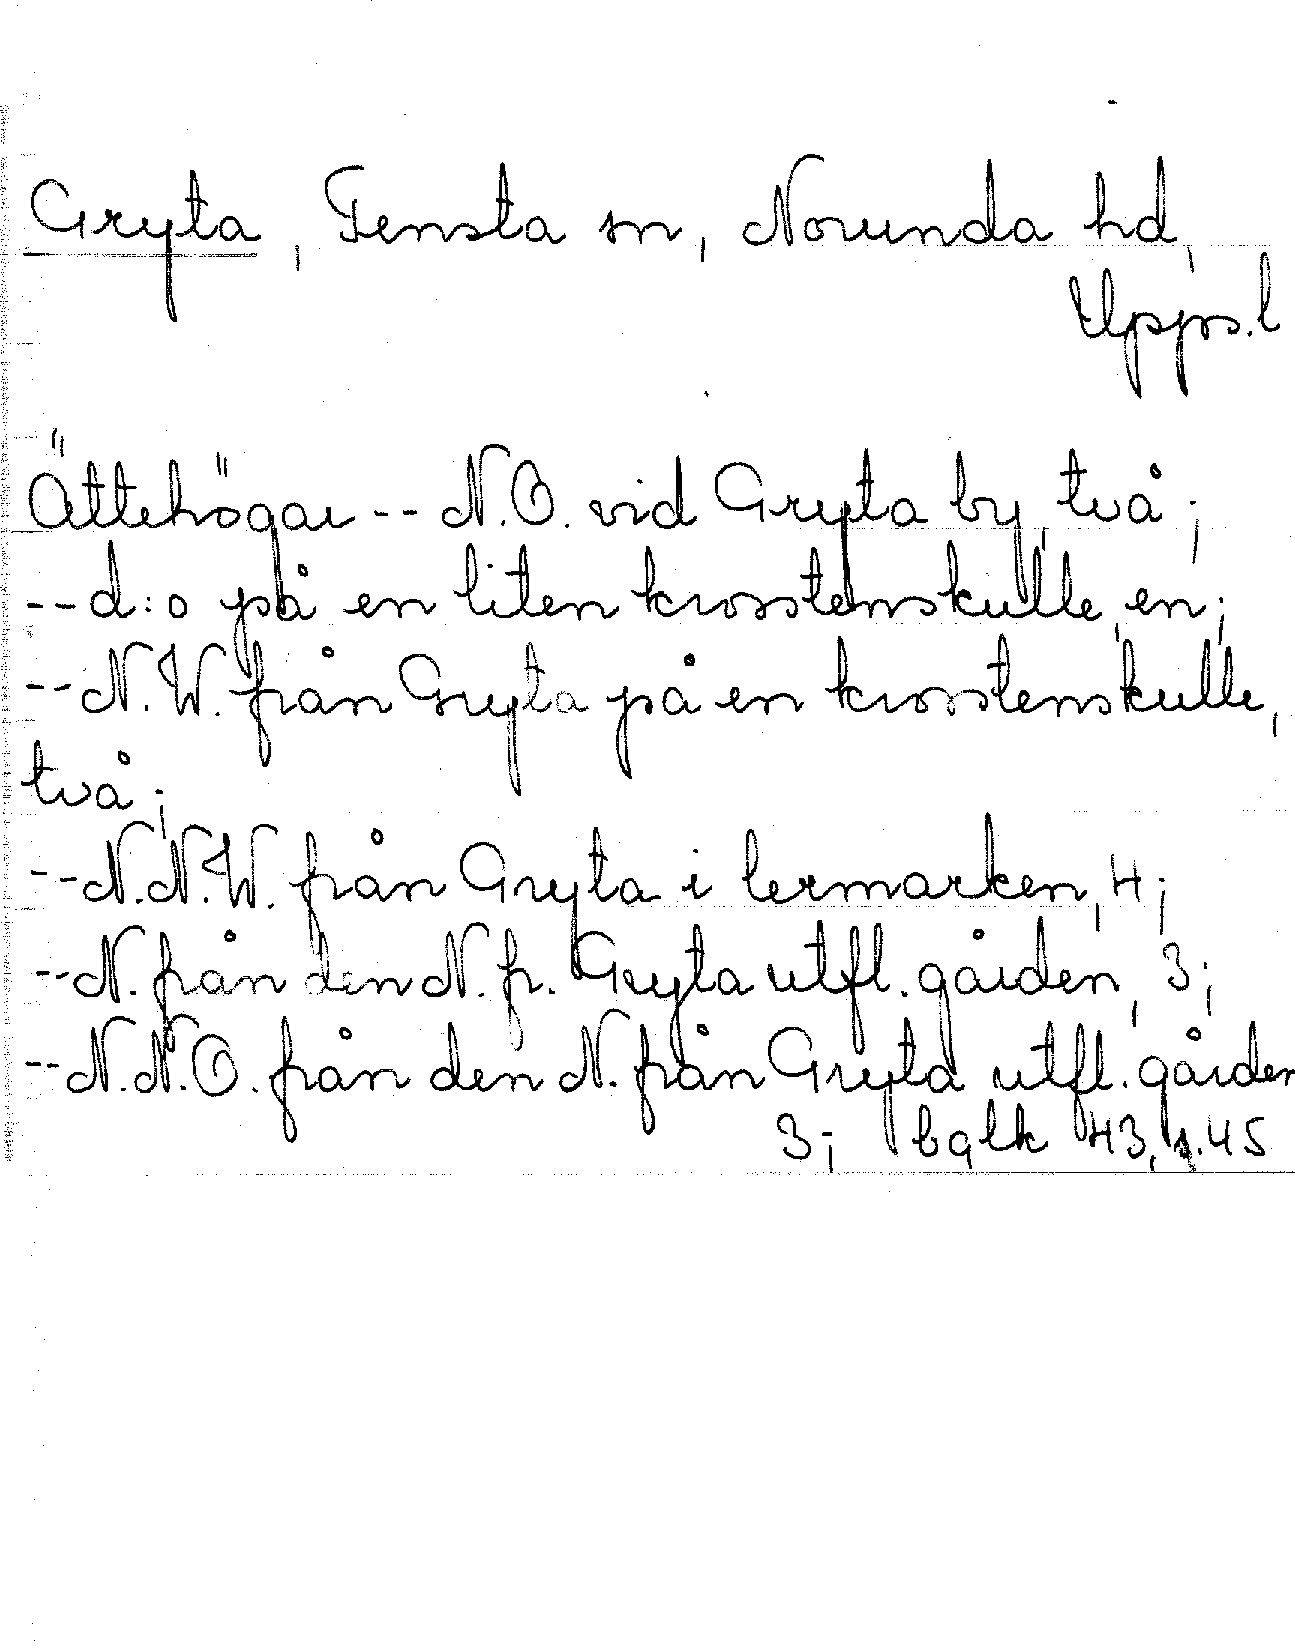 Gryta, Tensta sn, Norunda hd,
Upps.l
Ättehögar -- N.O. vid Gryta by, två;
-- d:o på en liten krosstenskulle, en;
-- N.W. från Gryta på en krosstenskulle,
två;
-- N.N.W. från Gryta i lermarken, 4;
-- N. från den N. fr. Gryta utfl. gården, 3;
-- N.N.O. från den N. från Gryta utfl. gården
3; bglk 43, s.45